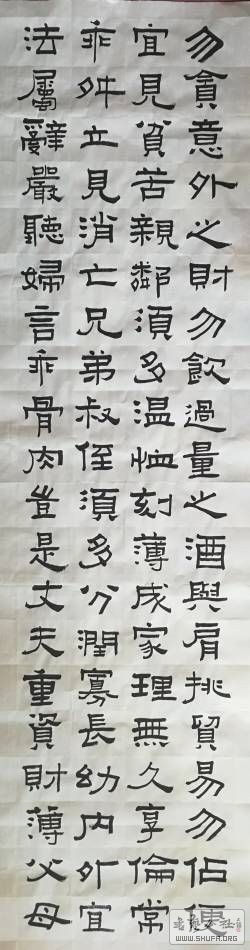 勿貪意外之財勿飲過量之酒與肩挑貿易勿佔便
宜見貧苦親鄰須多温恤刻薄成家理無久享倫常
乖舛立見消亡兄弟叔侄須多分潤寡長幼内外宜
法屬辭嚴聽婦言乖骨肉豈是丈夫重資財薄父母
WWW.SHUFA.ORG